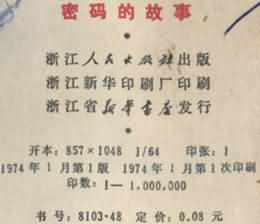 密码的故事
浙江人民出版社出版
浙江新华印刷厂印刷
浙江省新华书店发行
开本：857×1048 1/64 印张：1
1974年1月第1版 1974年1月第1次印刷
印数：1—1,000,000
书号：8103·48 定价：0.08元